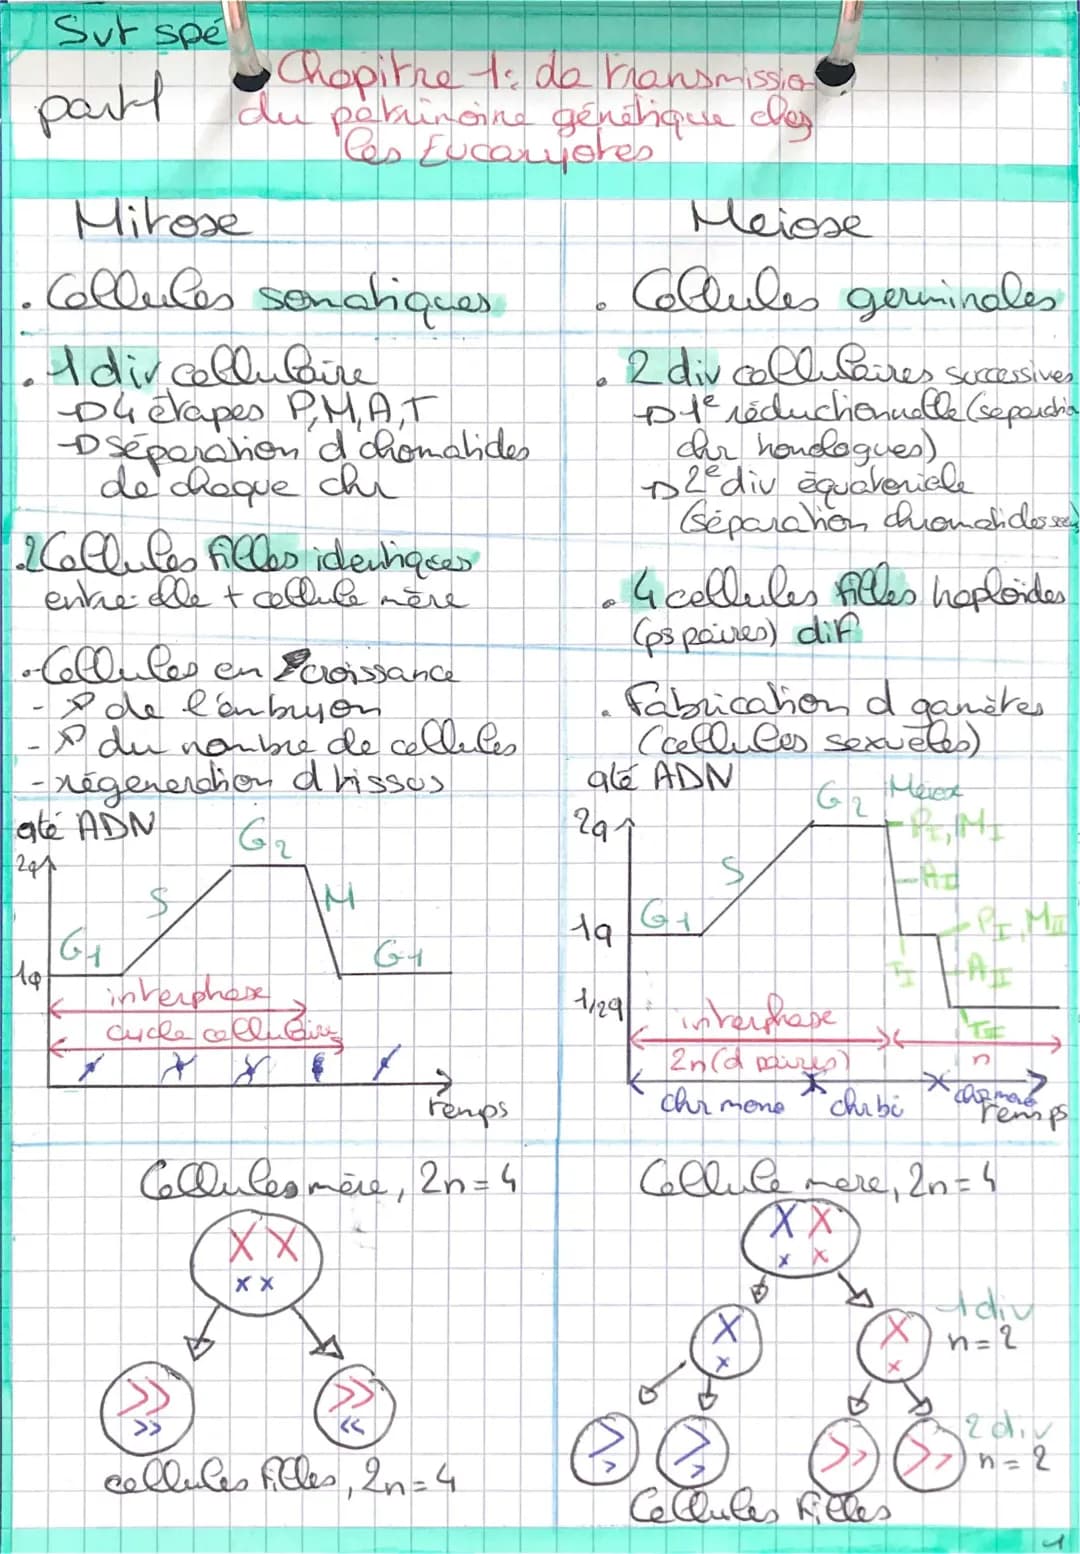 Svt spé
part 1
Chapitre 1: La transmission
du patrimoine génétique chez
les Eucaryotes
Mitose
. Cellules somatiques
. 1 div cellulaire
→ 4 étapes P,M,A,T
→ séparation d chomatides
de chaque chr
. 2 Cellules filles identiques
entre elle + cellule mère
. Cellules en croissance
- ↗ de l'embryon
- ↗ du nombre de cellules
- régeneration d tissus
qté ADN
2q
1q
G1
S
G2
M
G1
interphase
cycle cellulaire
Temps
Cellules mère, 2n=4
cellules filles, 2n=4
Meiose
. Cellules germinales
. 2 div cellulaires successives
→ 1e réductionnelle (séparation
chr homologues)
→ 2e div équatoriale
(séparation chromatides
. 4 cellules filles haploïdes
(ps paires) dif
. Fabrication d gamètes
(cellules sexuelles)
qté ADN
2q
1q
1/2q
G1
S
G2
Méiose
PI, MI
AI
TI
PI, MII
AII
TII
interphase
2n (d paires)
n
chr mono
chr bi
chr mono
Temps
Cellule mere, 2n=4
1 div
n=2
2 div
n=2
Cellules filles
1